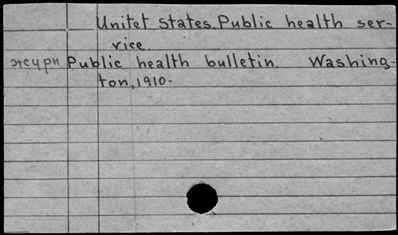 Unitet States. Public health ser-
vice.
журн Public health bulletin. Washing-
ton, 1910-